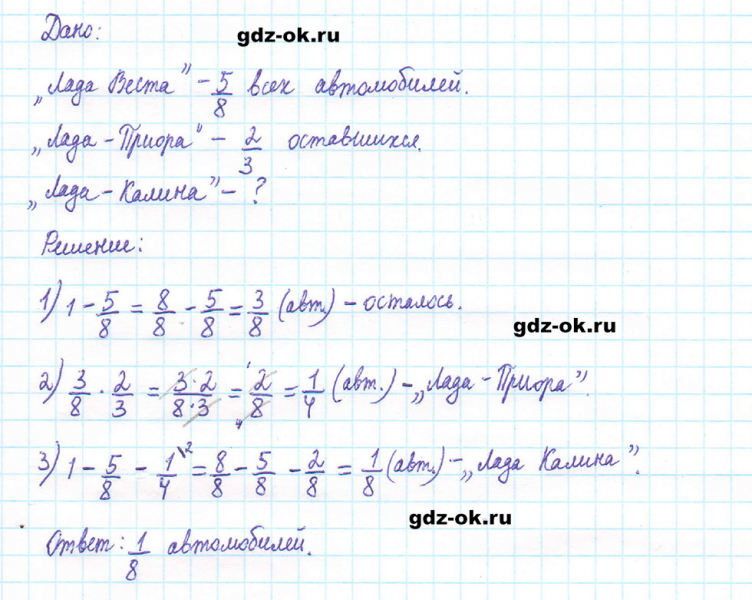 Дано:
gdz-ok.ru
„Лада Веста” – 5/8 всех автомобилей.
„Лада – Приора” – 2/3 оставшихся.
„Лада – Калина” – ?
Решение:
1) 1 – 5/8 = 8/8 – 5/8 = 3/8 (авт.) – осталось.
gdz-ok.ru
2) 3/8 · 2/3 = 3·2/8·3 = 2/8 = 1/4 (авт.) – „Лада – Приора”.
3) 1 – 5/8 – 1/4 \2 = 8/8 – 5/8 – 2/8 = 1/8 (авт.) – „Лада Калина”.
gdz-ok.ru
Ответ: 1/8 автомобилей.